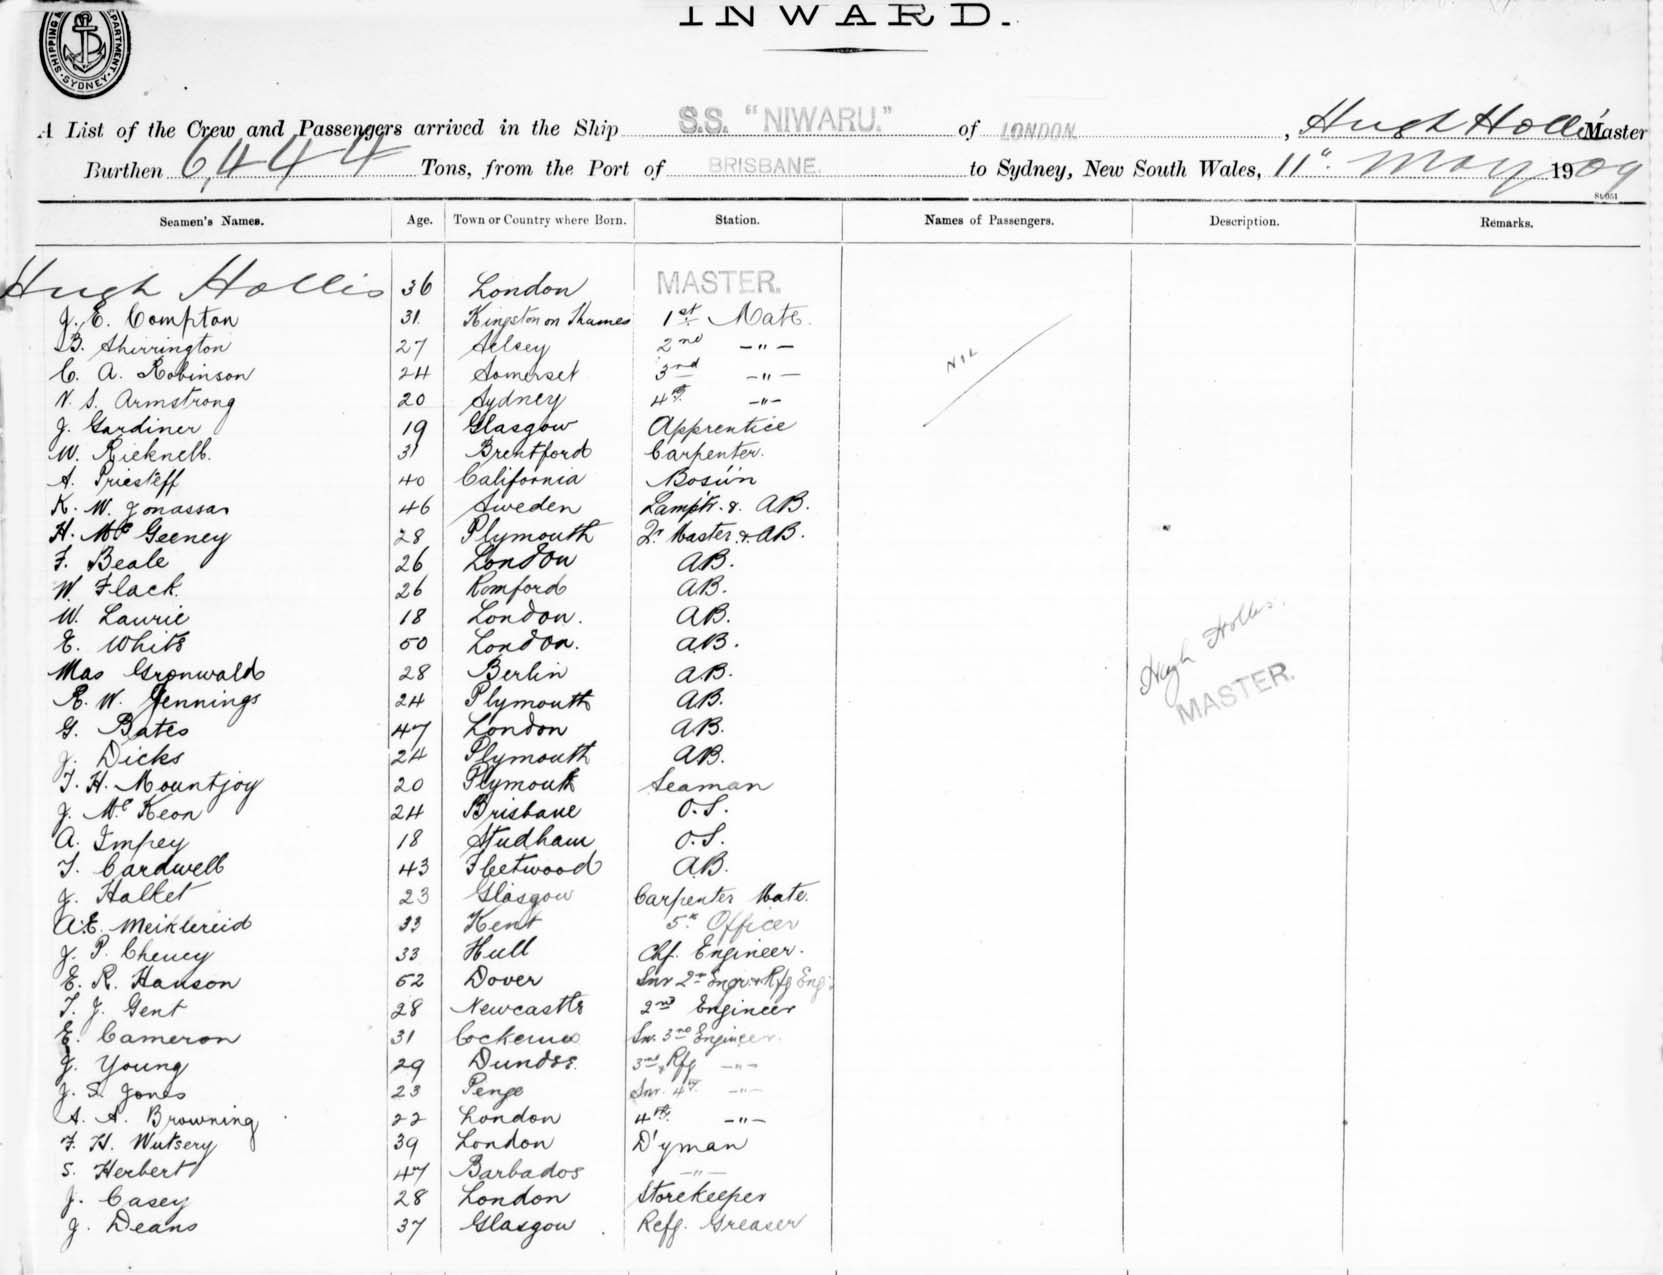 INWARD.
SHIPPING DEPARTMENT. SYDNEY.
A List of the Crew and Passengers arrived in the Ship S.S. "NIWARU." of LONDON. , Hugh Hollis Master
Burthen 6,444 Tons, from the Port of BRISBANE. to Sydney, New South Wales, 11th May 1909
Seamen's Names. Age. Town or Country where Born. Station. Names of Passengers. Description. Remarks.
Hugh Hollis 36 London MASTER.
J. E. Compton 31 Kingston on Thames 1st Mate.
B. Sherrington 27 Selsey 2nd -"-
C. A. Robinson 24 Somerset 3rd -"-
N. S. Armstrong 20 Sydney 4th -"-
J. Gardiner 19 Glasgow Apprentice
W. Ricknell. 31 Brentford Carpenter.
A. Priesteff 40 California Bosun
K. W. Jonassar 46 Sweden Lamptr. & AB.
H. McGeeney 28 Plymouth Qr Master & AB.
F. Beale 26 London AB.
W. Flack. 26 Romford AB.
W. Laurie 18 London. AB.
E. White 50 London. AB.
Max Gronwald 28 Berlin AB.
R. W. Jennings 24 Plymouth AB.
G. Bates 47 London AB.
J. Dicks 24 Plymouth AB.
T. H. Mountjoy 20 Plymouth Seaman
J. McKeon 24 Brisbane O.S.
A. Impey 18 Studham O.S.
T. Cardwell 43 Fleetwood AB.
J. Halket 23 Glasgow Carpenter Mate.
A. E. Meiklereid 33 Kent 5th Officer
J. P. Cheney 33 Hull Chf. Engineer.
E. R. Hanson 52 Dover Snr 2nd Engr. & Rfg Eng.
T. J. Gent 28 Newcastle 2nd Engineer
E. Cameron 31 Snr. 3rd Engineer.
J. Young 29 Dundee. 3rd & Rfg -"-
J. S. Jones 23 Penge Snr. 4th -"-
A. A. Browning 22 London 4th -"-
F. H. Wutsery 39 London D'yman
S. Herbert 47 Barbados -"-
J. Casey 28 London Storekeeper
J. Deans 37 Glasgow Refg. Greaser
NIL
Hugh Hollis.
MASTER.